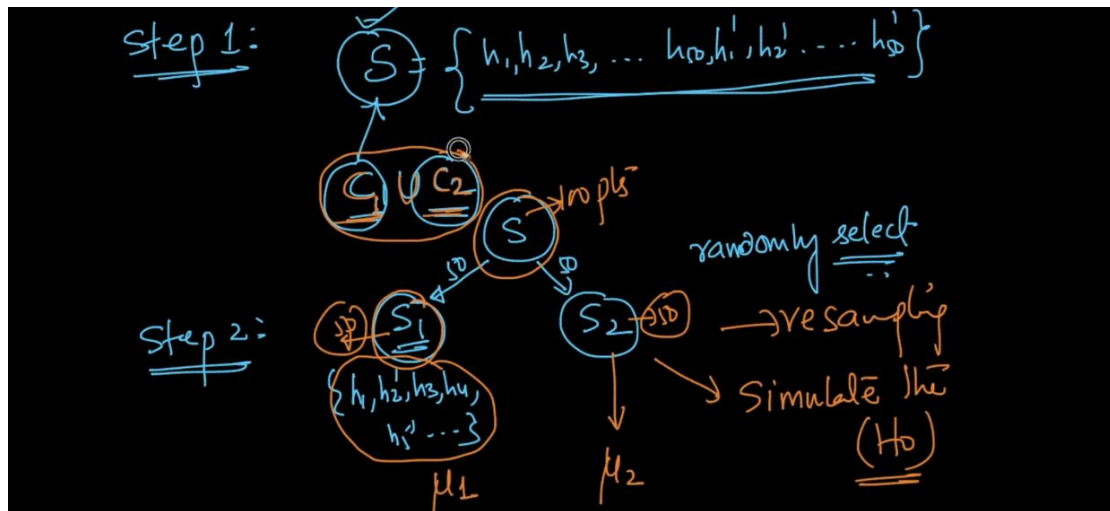 Step 1: S = { h1, h2, h3, ... h50, h1', h2' .... h50' }
C1 U C2
S → 100 pts
50 50
randomly select
Step 2: 50 S1 S2 → 50
→ resampling
{h1, h2', h3, h4,
h5' ---}
Simulate the
(H0)
μ1 μ2